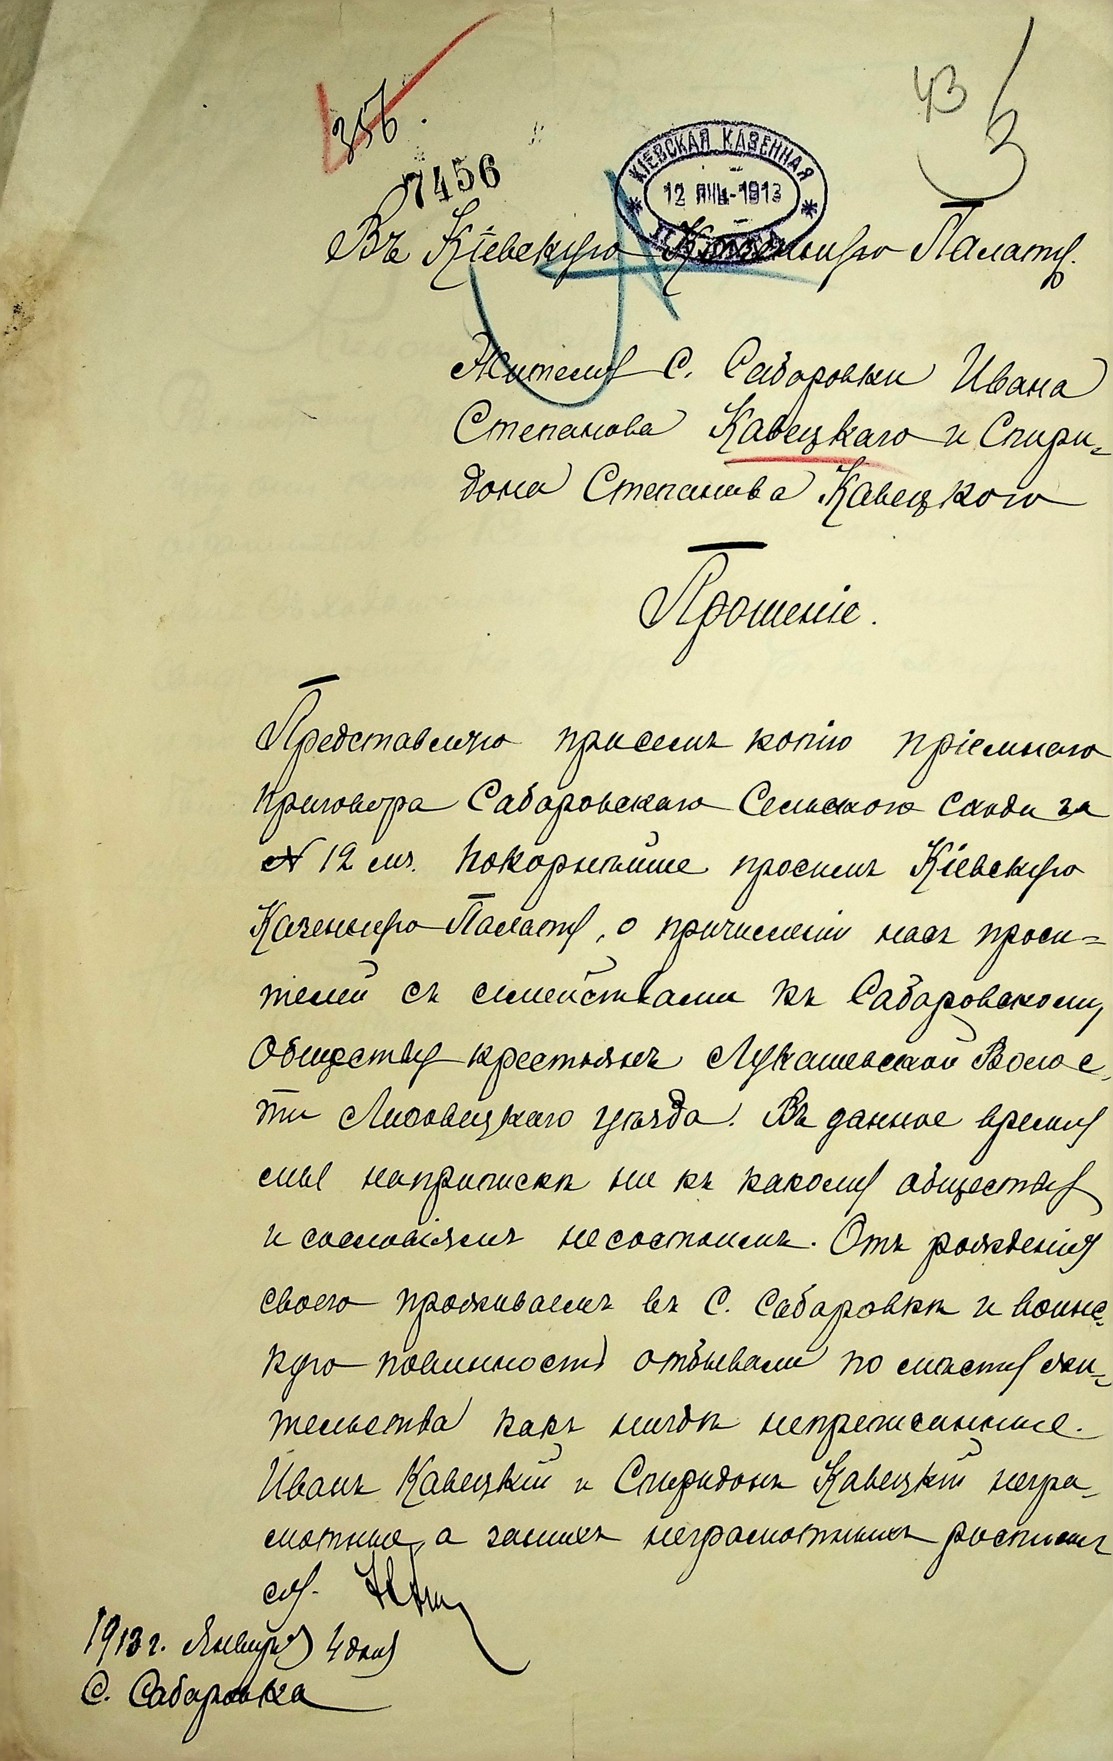 43
356.
7456
КІЕВСКАЯ КАЗЕННАЯ
12 ЯНВ. 1913
Въ Кіевскую Казенную Палату.
Жителя С. Сабаровки Ивана
Степанова Кавецкаго и Спири=
дона Степанова Кавецкого
Прошеніе.
Представляю присемъ копію пріемнаго
приговора Сабаровскаго Сельского схода за
№ 12 мъ. Покорнѣйше просимъ Кіевскую
Казенную Палату, о причисленіи насъ проси=
телей съ семействами къ Сабаровскому
Обществу крестьянъ Лукашевской Волос
ти Липовецкаго уѣзда. Въ данное время
мы наприпискѣ ни къ какому обществу
и сословіямъ несостоимъ. Отъ рожденія
своего проживаемъ въ С. Сабаровкѣ и воинс-
кую повинность отбывали по мѣсту жи-
тельства какъ нигдѣ неприписанные.
Иванъ Кавецкій и Спиридонъ Кавецкій негра-
мотные, а занихъ неграмотныхъ росписал
ся.
1913 г. Января 4 дня
С. Сабаровка